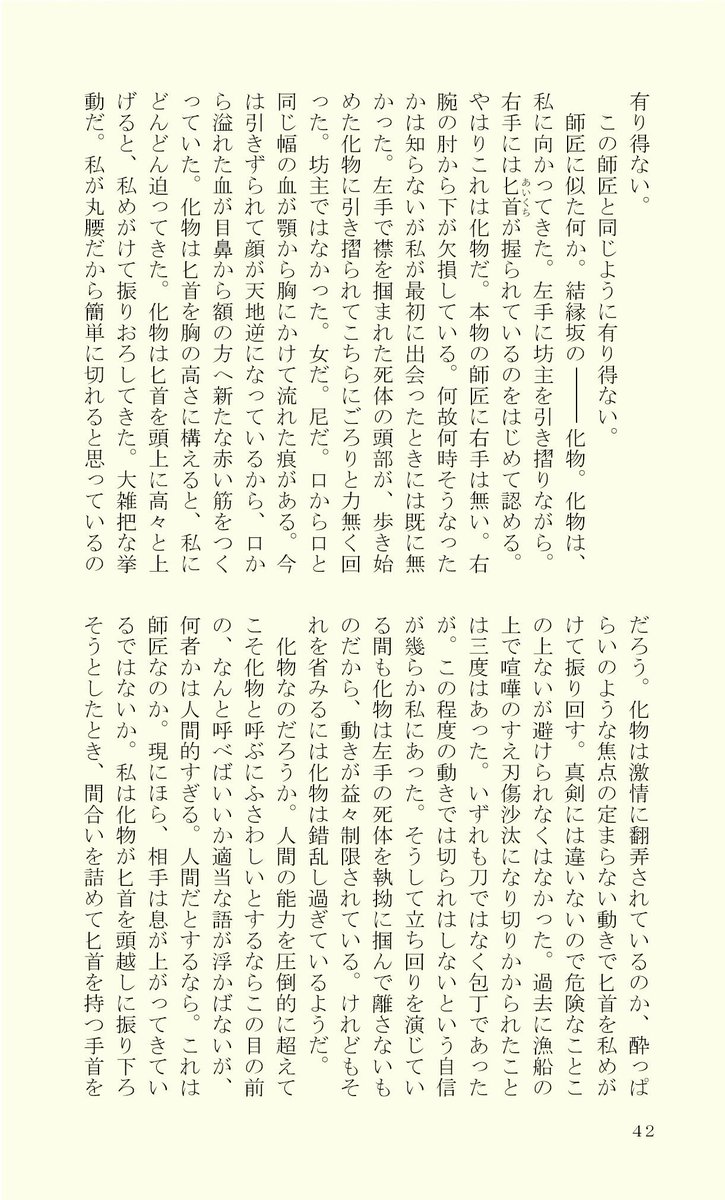 有り得ない。
　この師匠と同じように有り得ない。
　師匠に似た何か。結縁坂の――化物。化物は、
私に向かってきた。左手に坊主を引き摺りながら。
右手には匕首が握られているのをはじめて認める。
あいくち
やはりこれは化物だ。本物の師匠に右手は無い。右
腕の肘から下が欠損している。何故何時そうなった
かは知らないが私が最初に出会ったときには既に無
かった。左手で襟を掴まれた死体の頭部が、歩き始
めた化物に引き摺られてこちらにごろりと力無く回
った。坊主ではなかった。女だ。尼だ。口から口と
同じ幅の血が顎から胸にかけて流れた痕がある。今
は引きずられて顔が天地逆になっているから、口か
ら溢れた血が目鼻から額の方へ新たな赤い筋をつく
っていた。化物は匕首を胸の高さに構えると、私に
どんどん迫ってきた。化物は匕首を頭上に高々と上
げると、私めがけて振りおろしてきた。大雑把な挙
動だ。私が丸腰だから簡単に切れると思っているの
だろう。化物は激情に翻弄されているのか、酔っぱ
らいのような焦点の定まらない動きで匕首を私めが
けて振り回す。真剣には違いないので危険なことこ
の上ないが避けられなくはなかった。過去に漁船の
上で喧嘩のすえ刃傷沙汰になり切りかかられたこと
は三度はあった。いずれも刀ではなく包丁であった
が。この程度の動きでは切られはしないという自信
が幾らか私にあった。そうして立ち回りを演じてい
る間も化物は左手の死体を執拗に掴んで離さないも
のだから、動きが益々制限されている。けれどもそ
れを省みるには化物は錯乱し過ぎているようだ。
　化物なのだろうか。人間の能力を圧倒的に超えて
こそ化物と呼ぶにふさわしいとするならこの目の前
の、なんと呼べばいいか適当な語が浮かばないが、
何者かは人間的すぎる。人間だとするなら。これは
師匠なのか。現にほら、相手は息が上がってきてい
るではないか。私は化物が匕首を頭越しに振り下ろ
そうとしたとき、間合いを詰めて匕首を持つ手首を
42